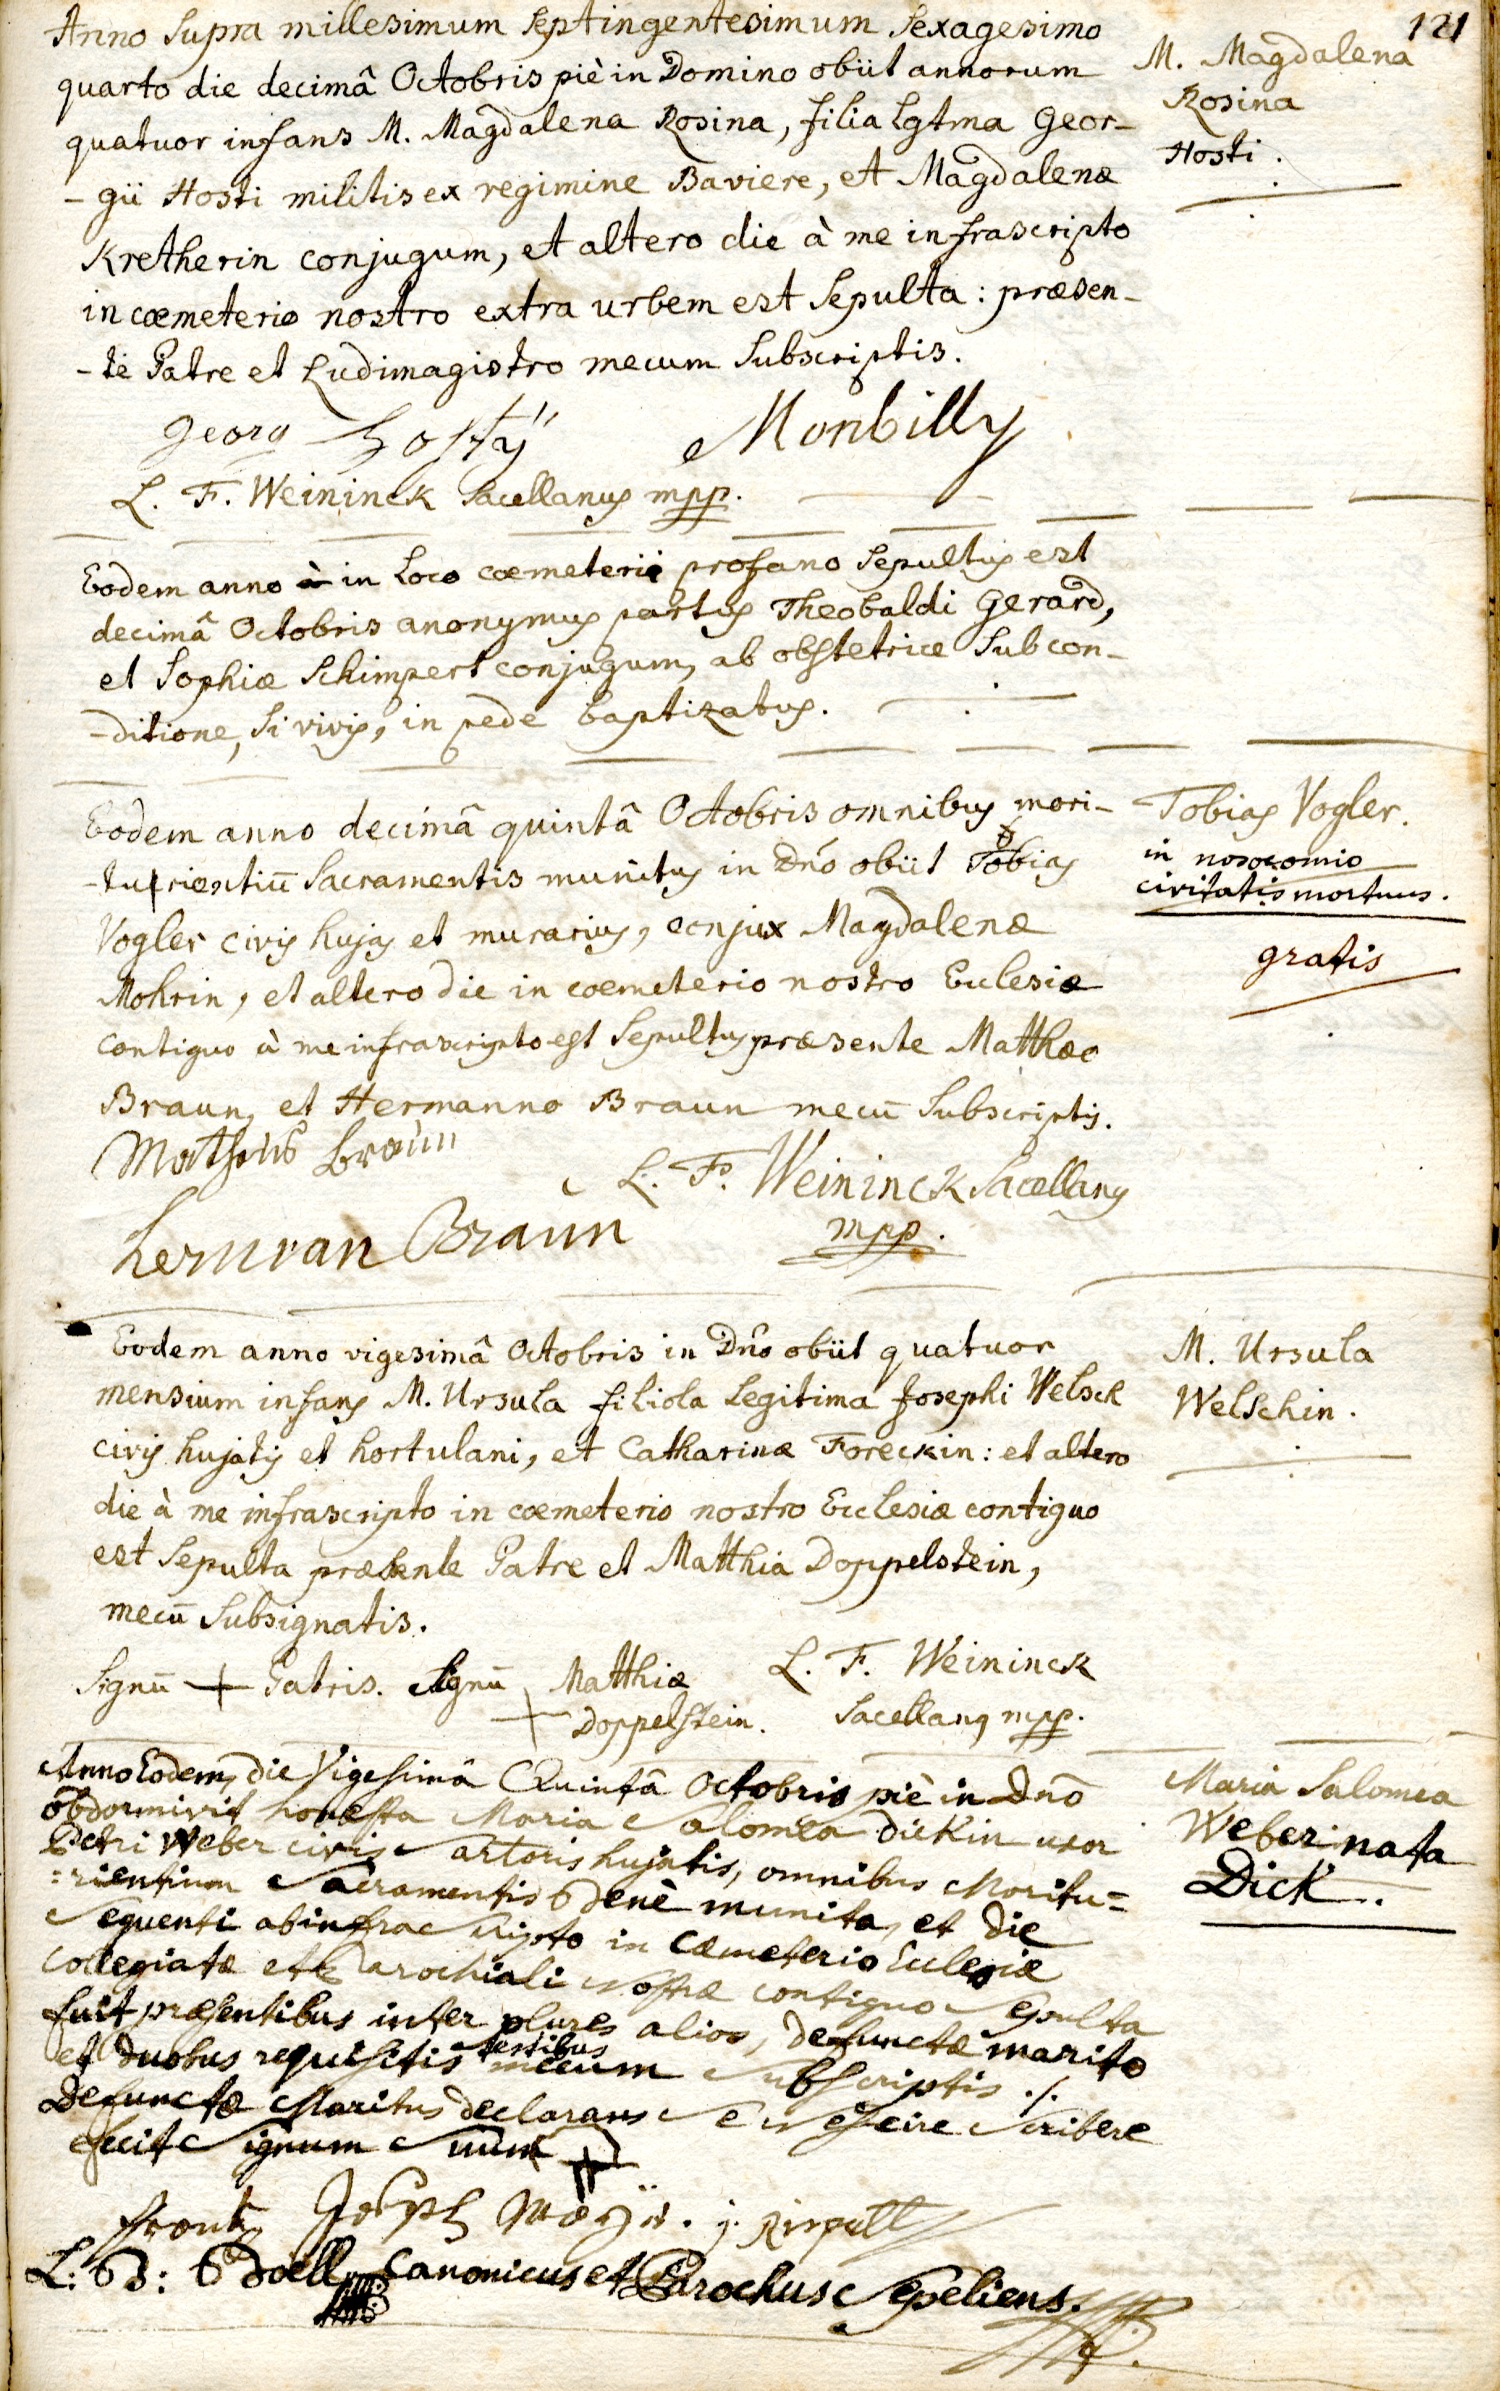 121
Anno supra millesimum septingentesimum sexagesimo
quarto die decimâ Octobris piè in Domino obiit annorum
quatuor infans M. Magdalena Rosina, filia Lgtma Geor-
-gii Hosti militis ex regimine Baviere, et Magdalenæ
Kretherin conjugum, et altero die à me infrascripto
in cœmeterio nostro extra urbem est sepulta: præsen-
-te Patre et Ludimagistro mecum subscriptis.
M. Magdalena
Rosina
Hosti.
Georg Hosty Monbilly
L. F. Weininck sacellanus mpp.
Eodem anno in loco cœmeterii profano sepultus est
decimâ Octobris anonymus partus Theobaldi Gerard,
et Sophiæ Schimpert conjugum, ab obstetrice sub con-
-ditione, si vivis, in pede baptizatus.
Eodem anno decimâ quintâ Octobris omnibus mori-
-turientiū Sacramentis munitus in Dno obiit Tobias
Vogler civis hujas et murarius, conjux Magdalenæ
Mohrin, et altero die in cœmeterio nostro Ecclesiæ
contiguo à me infrascripto est sepultus præsente Matthæo
Braun, et Hermanno Braun mecū subscriptis.
Tobias Vogler.
in nosocomio
civitatis mortuus.
gratis
Matheus Braun
L. F. Weininck Sacellanus
mpp.
herman Braun
Eodem anno vigesimâ Octobris in Dno obiit quatuor
mensium infans M. Ursula filiola legitima Josephi Welsch
civis hujatis et hortulani, et Catharinæ Foreckin: et altero
die à me infrascripto in cœmeterio nostro Ecclesiæ contiguo
est sepulta præsente Patre et Matthia Doppelstein,
mecū subsignatis.
M. Ursula
Welschin.
Signū + Patris. Signū Matthiæ L. F. Weininck
+ Doppelstein. Sacellanus mpp.
Anno Eodem, die Vigesimâ Quintâ Octobris piè in Dnō
obdormivit honesta Maria Salomea dickin uxor
Petri Weber civis Sartoris hujatis, omnibus Moritu=
=rientium Sacramentis benè munita, et die
Sequenti ab infra Scripto in Cæmeterio Ecclesiæ
Collegiatæ et Parochiali Nostræ contiguo Sepulta
fuit præsentibus inter plures alios, defunctæ marito
et duobus requisitis testibus mecum Subscriptis ./.
Defunctæ Maritus declarans Se Nescire Scribere
fecit Signum Suum +
Maria Salomea
Weber nata
Dick.
frantz Joseph J. Ringell
L: B: Boell Canonicus et Parochus Sepeliens.